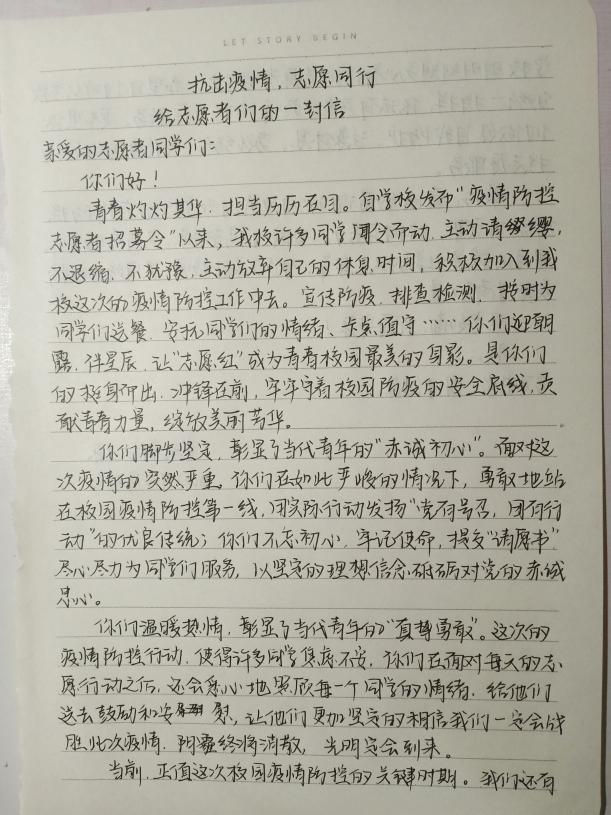 LET STORY BEGIN
抗击疫情，志愿同行
给志愿者们的一封信
亲爱的志愿者同学们：
你们好！
青春灼灼其华，担当历历在目。自学校发布“疫情防控
志愿者招募令”以来，我校许多同学闻令而动，主动请缨，
不退缩、不犹豫，主动放弃自己的休息时间，积极加入到我
校这次的疫情防控工作中去。宣传防疫、排查检测、按时为
同学们送餐、安抚同学们的情绪、卡点值守……你们迎朝
露、伴星辰，让“志愿红”成为青春校园最美的身影。是你们
的挺身而出，冲锋在前，牢牢守着校园防疫的安全底线，贡
献青春力量，绽放美丽芳华。
你们脚步坚定，彰显了当代青年的“赤诚初心”。面对这
次疫情的突然严重，你们在如此严峻的情况下，勇敢地站
在校园疫情防控第一线，用实际行动发扬“党有号召，团有行
动”的优良传统；你们不忘初心，牢记使命，提交“请愿书”，
尽心尽力为同学们服务，以坚定的理想信念砥砺对党的赤诚
忠心。
你们温暖热情，彰显了当代青年的“真挚勇敢”。这次的
疫情防控行动，使得许多同学焦虑不安，你们在面对每天的志
愿行动之后，还会悉心地照顾每一个同学的情绪，给他们
送去鼓励和安慰，让他们更加坚定的相信我们一定会战
胜此次疫情，阴霾终将消散，光明定会到来。
当前，正值这次校园疫情防控的关键时期。我们还有